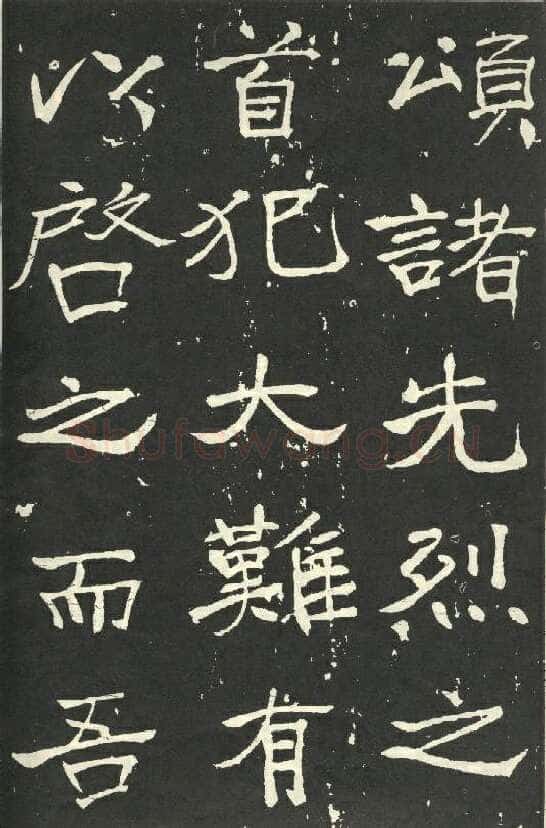 頌諸先烈之
首犯大難有
以啓之而吾
Shufawang.cn